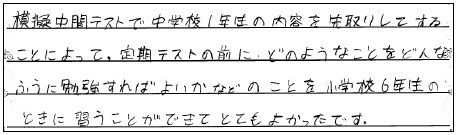 模擬中間テストで中学校1年生の内容を先取りしてする
ことによって。定期テストの前に、どのようなことをどんな
ふうに勉強すればよいかなどのことを小学校6年生の
ときに習うことができてとてもよかったです。